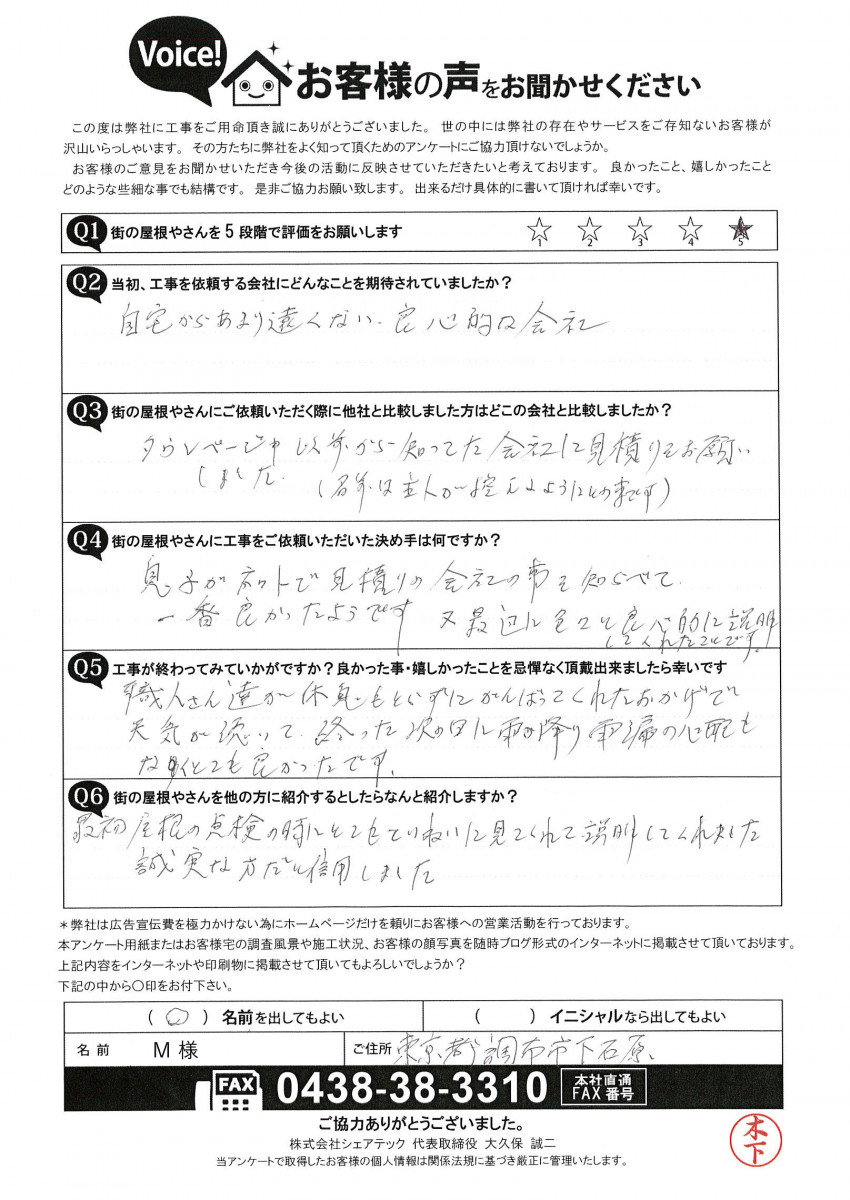 Voice!
お客様の声をお聞かせください
この度は弊社に工事をご用命頂き誠にありがとうございました。 世の中には弊社の存在やサービスをご存知ないお客様が
沢山いらっしゃいます。 その方たちに弊社をよく知って頂くためのアンケートにご協力頂けないでしょうか。
お客様のご意見をお聞かせいただき今後の活動に反映させていただきたいと考えております。 良かったこと、嬉しかったこと
どのような些細な事でも結構です。 是非ご協力お願い致します。 出来るだけ具体的に書いて頂ければ幸いです。
Q1 街の屋根やさんを5段階で評価をお願いします
1 2 3 4 5
Q2 当初、工事を依頼する会社にどんなことを期待されていましたか？
自宅からあまり遠くない、良心的な会社
Q3 街の屋根やさんにご依頼いただく際に他社と比較しました方はどこの会社と比較しましたか？
タウンページや以前から知ってた会社に見積りをお願い
しました。
(名前は主人が控えるようにとの事です)
Q4 街の屋根やさんに工事をご依頼いただいた決め手は何ですか？
息子がネットで見積りの会社の事を知らべて
一番良かったようです 又最近に
良心的に説明
してくれたことです。
Q5 工事が終わってみていかがですか？良かった事・嬉しかったことを忌憚なく頂戴出来ましたら幸いです
職人さん達が休息もとらずにがんばってくれたおかげで
天気が続いて、終った次の日に雨が降り雨漏の心配も
なくとても良かったです。
Q6 街の屋根やさんを他の方に紹介するとしたらなんと紹介しますか？
最初屋根の点検の時にとてもていねいに見てくれて説明してくれました
誠実な方だと信用しました
＊弊社は広告宣伝費を極力かけない為にホームページだけを頼りにお客様への営業活動を行っております。
本アンケート用紙またはお客様宅の調査風景や施工状況、お客様の顔写真を随時ブログ形式のインターネットに掲載させて頂いております。
上記内容をインターネットや印刷物に掲載させて頂いてもよろしいでしょうか？
下記の中から○印をお付下さい。
( ○ ) 名前を出してもよい ( ) イニシャルなら出してもよい
名前 M 様 ご住所 東京都調布市下石原
FAX 0438-38-3310 本社直通 FAX番号
ご協力ありがとうございました。
株式会社シェアテック 代表取締役 大久保 誠二
当アンケートで取得したお客様の個人情報は関係法規に基づき厳正に管理いたします。
木下